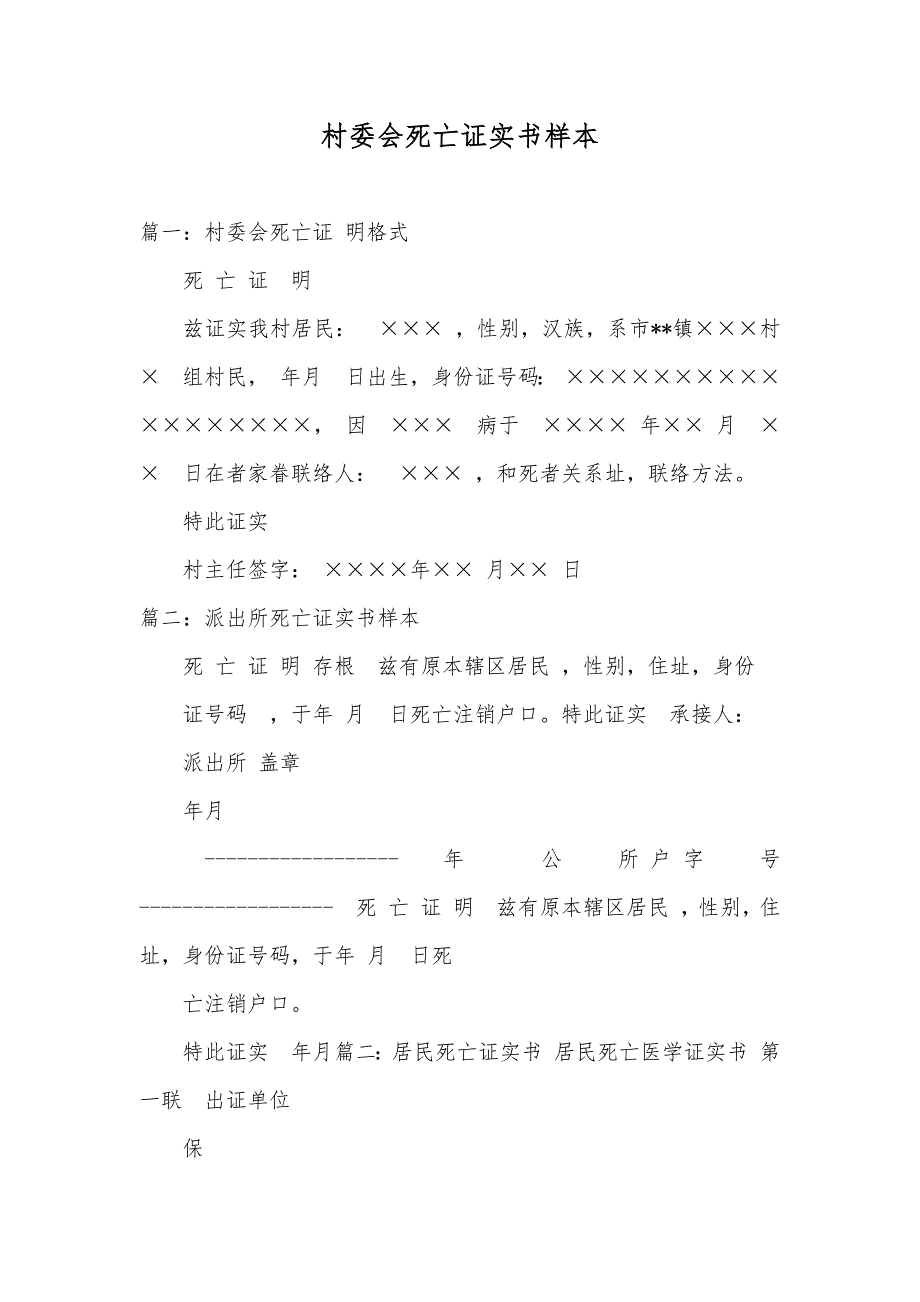 村委会死亡证实书样本
篇一：村委会死亡证 明格式
死 亡 证 明
兹证实我村居民： ××× ，性别，汉族，系市**镇×××村
× 组村民， 年月 日出生，身份证号码： ××××××××××
××××××××， 因 ××× 病于 ×××× 年×× 月 ×
× 日在者家眷联络人： ××× ，和死者关系址，联络方法。
特此证实
村主任签字： ××××年×× 月×× 日
篇二：派出所死亡证实书样本
死 亡 证 明 存根 兹有原本辖区居民 ，性别，住址，身份
证号码 ，于年 月 日死亡注销户口。特此证实 承接人：
派出所 盖章
年月
------------------ 年 公 所户字 号
------------------ 死 亡 证 明 兹有原本辖区居民 ，性别，住
址，身份证号码，于年 月 日死
亡注销户口。
特此证实 年月篇二：居民死亡证实书 居民死亡医学证实书 第
一联 出证单位
保